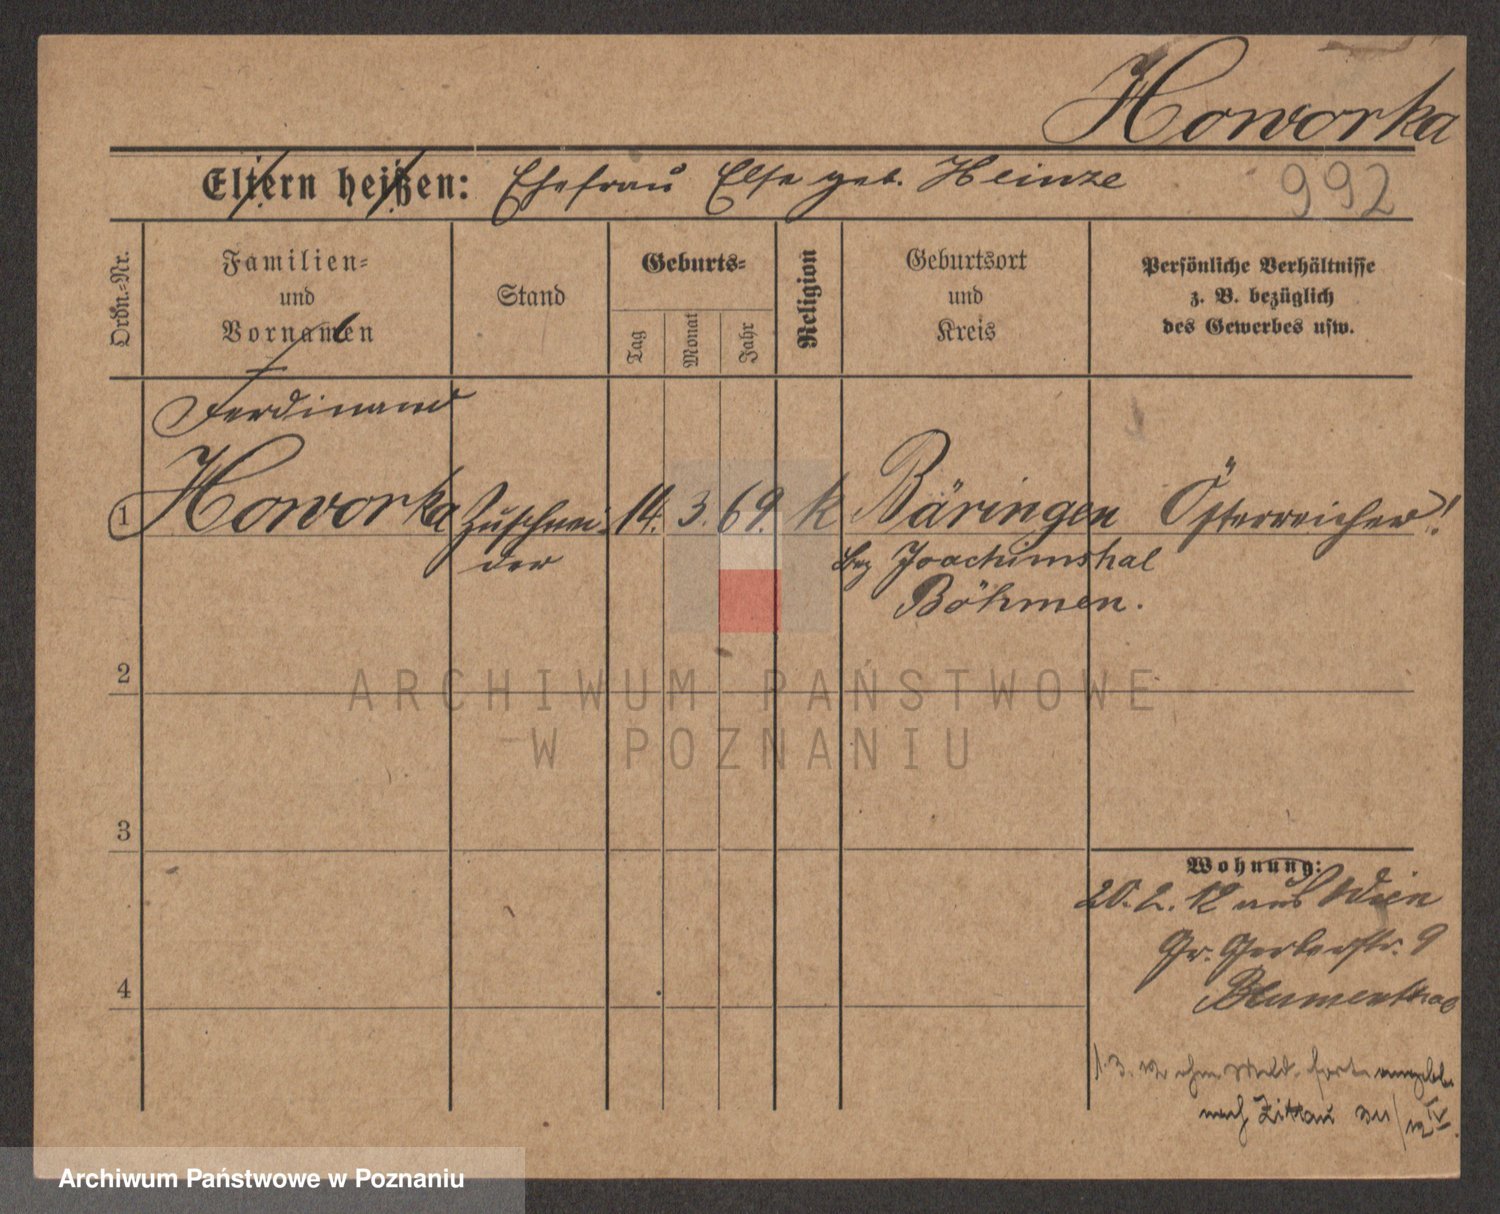 Howorka
Eltern heißen: Ehefrau Else geb. Heinze
992
Ordn.-Nr.
Familien-
und
Vornamen
Stand
Geburts-
Tag
Monat
Jahr
Religion
Geburtsort
und
Kreis
Persönliche Verhältnisse
z. B. bezüglich
des Gewerbes usw.
Ferdinand
1 Howorka Zuschnei- 14. 3. 69. k Bäringen Österreicher!
der Bez Joachimsthal
Böhmen.
2
ARCHIWUM PAŃSTWOWE
W POZNANIU
3
Wohnung:
20. 2. 12 aus Wien
Gr. Gerberstr. 9
Blumenthal
4
1. 3. 12 ohne Meld. fort angebl.
nach Zittau
Archiwum Państwowe w Poznaniu